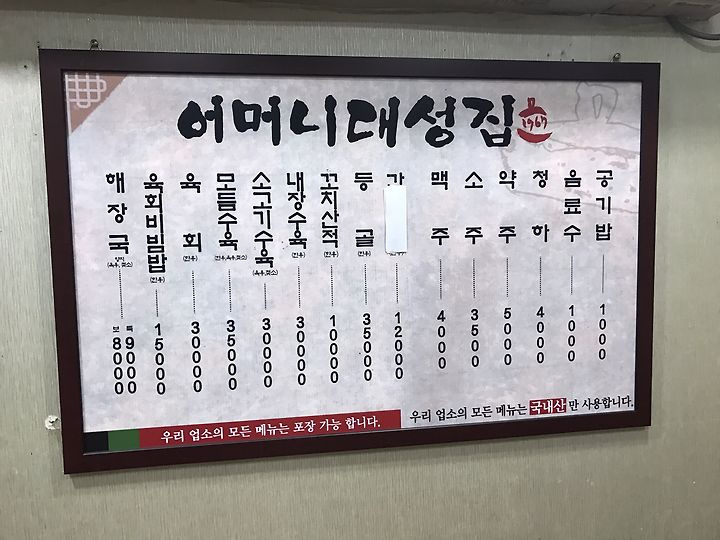 어머니대성집 1967
해장국 양지 (육우,젖소) 보 8000 특 9000
육회비빔밥 (한우) 15000
육회 (한우) 30000
모듬수육 (한우,육우,젖소) 35000
소고기수육 (육우,젖소) 30000
내장수육 (한우) 30000
꼬치산적 (한우) 10000
등골 (한우) 35000
12000
맥주 4000
소주 3500
약주 5000
청하 4000
음료수 1000
공기밥 1000
우리 업소의 모든 메뉴는 포장 가능 합니다.
우리 업소의 모든 메뉴는 국내산 만 사용합니다.